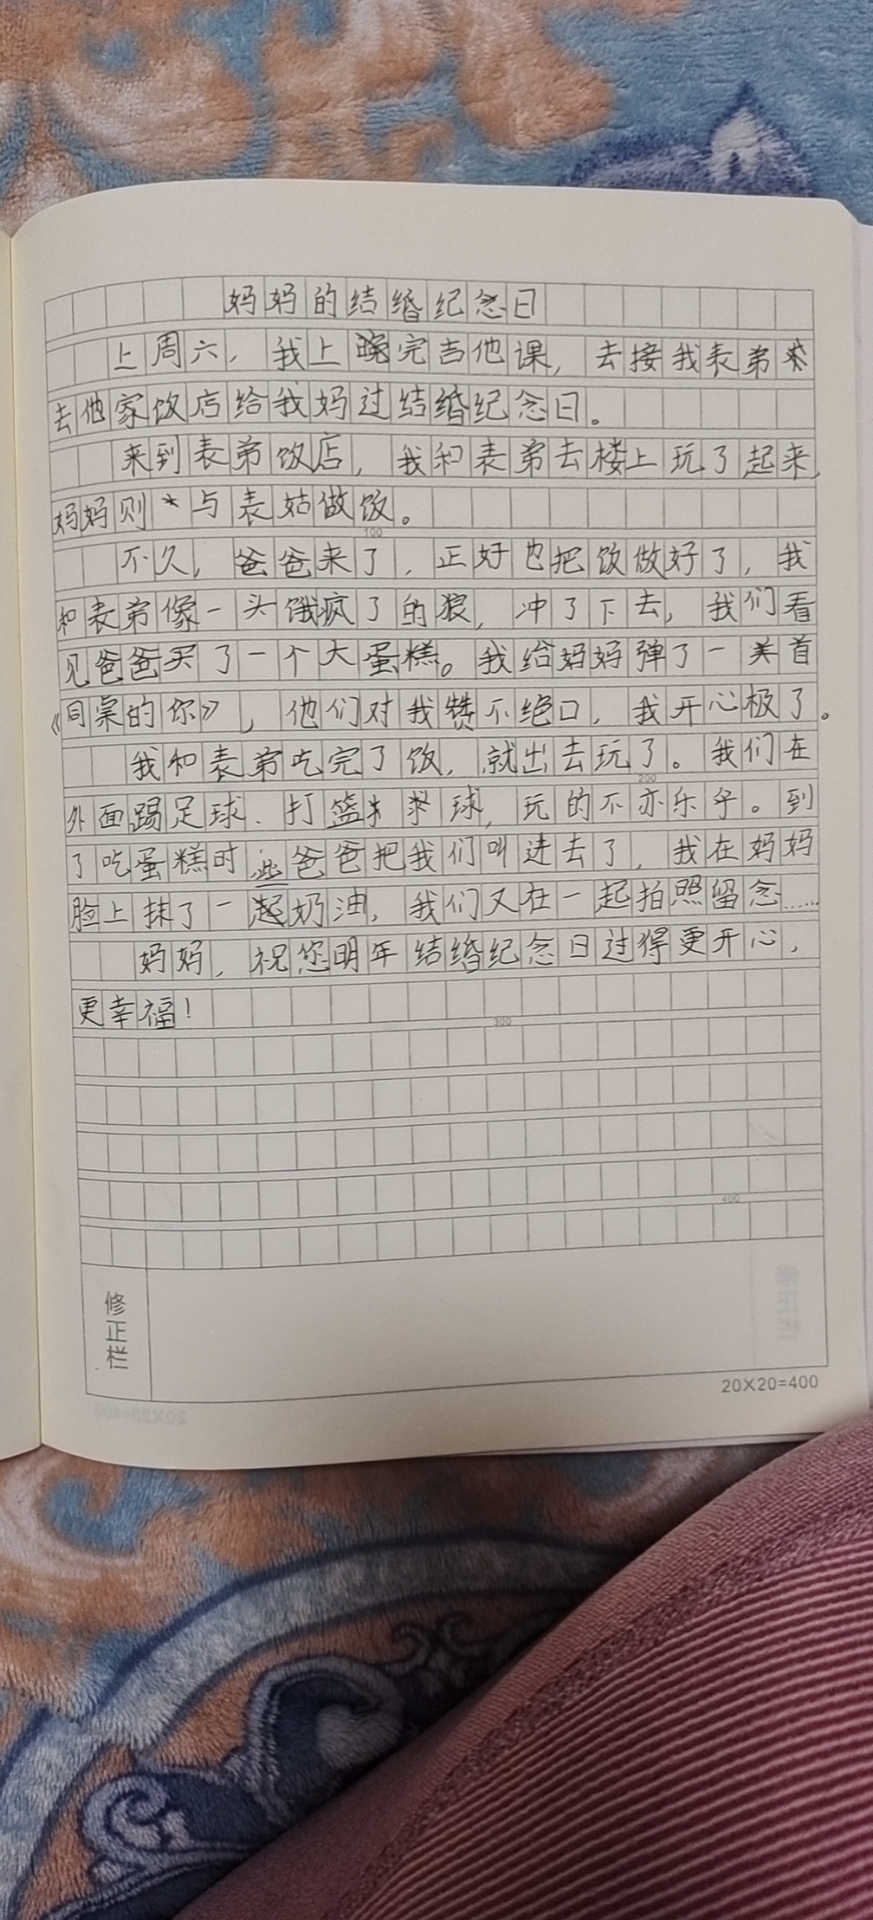 妈妈的结婚纪念日
上周六，我上完吉他课，去接我表弟
去他家饭店给我妈过结婚纪念日。
来到表弟饭店，我和表弟去楼上玩了起来，
妈妈则与表姑做饭。
100
不久，爸爸来了，正好也把饭做好了，我
和表弟像一头饿疯了的狼，冲了下去，我们看
见爸爸买了一个大蛋糕。我给妈妈弹了一美首
《同桌的你》，他们对我赞不绝口，我开心极了。
我和表弟吃完了饭，就出去玩了。我们在
200
外面踢足球、打篮球，玩的不亦乐乎。到
了吃蛋糕时，爸爸把我们叫进去了，我在妈妈
脸上抹了一起奶油，我们又在一起拍照留念……
妈妈，祝您明年结婚纪念日过得更开心，
更幸福！
300
400
修正栏
20X20=400